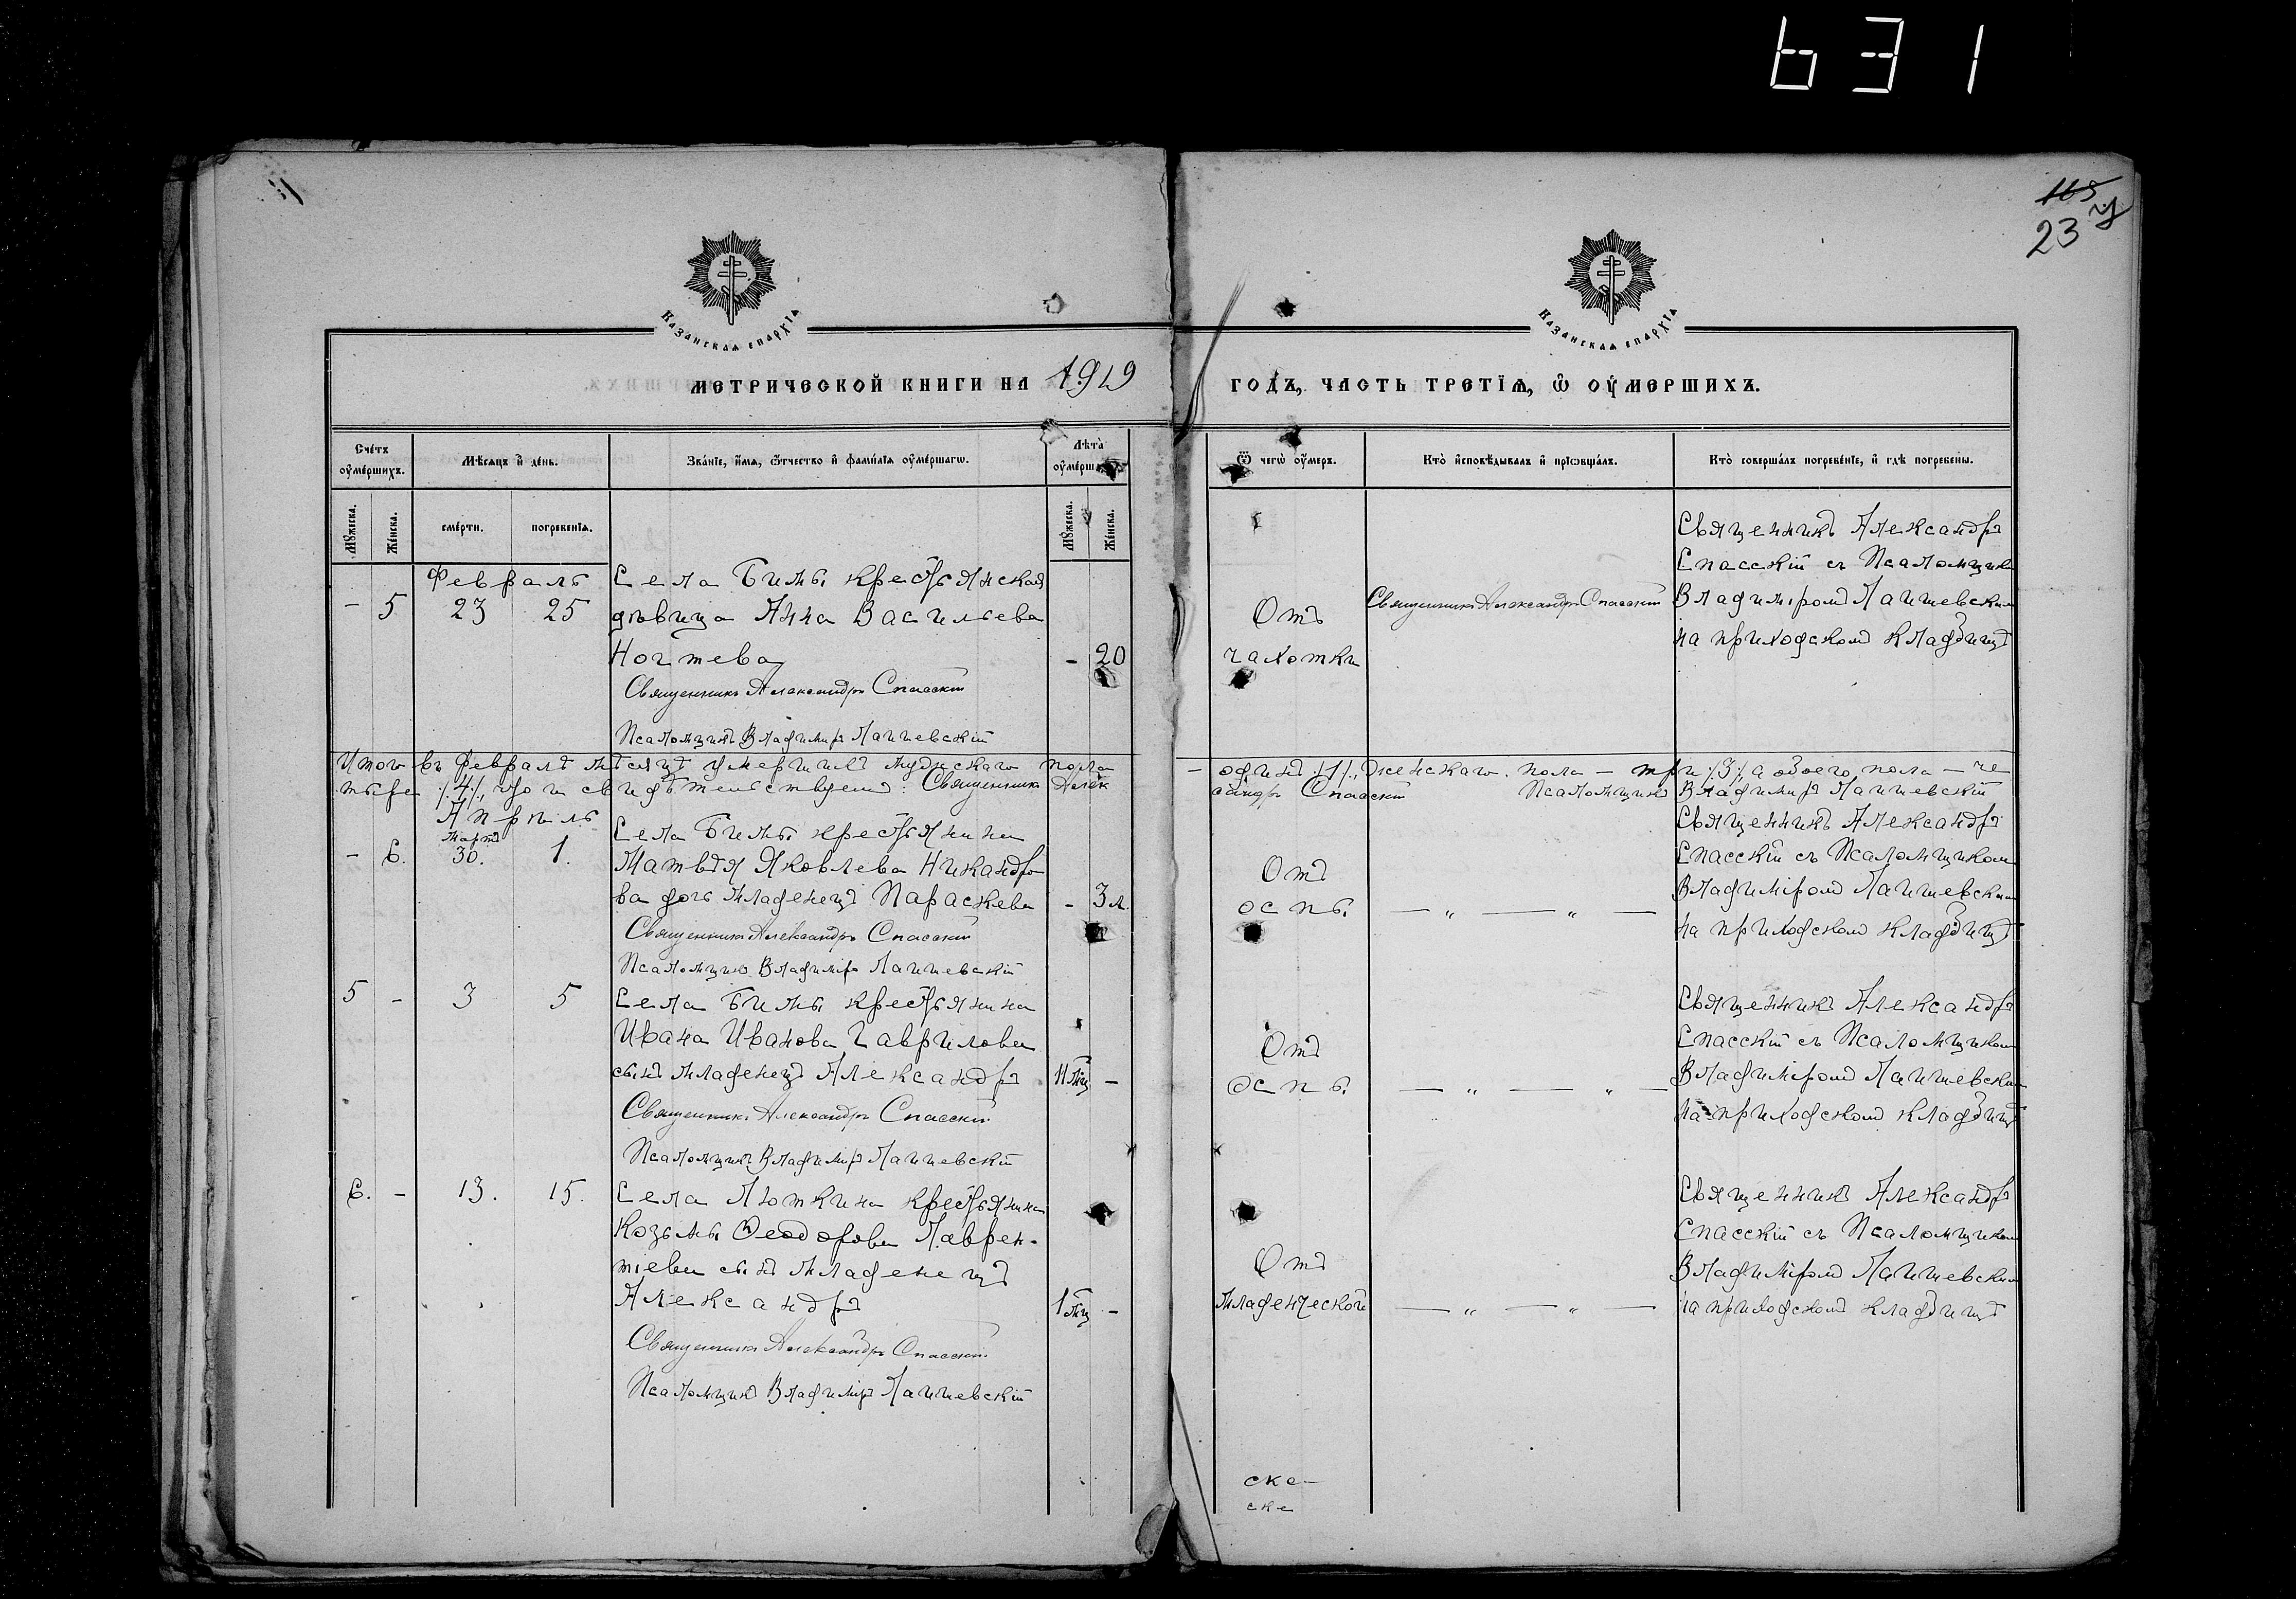 631
165
23
Казанская епархїѧ
Казанская епархїѧ
метрической книги на 1919
годъ, часть третїѧ, ѡ оумершихъ.
Счетъ оумершихъ.
Мѣсяцъ и день.
Званїе, имѧ, ѿчество и фамилїѧ оумершагѡ.
Лѣта оумершагѡ
Ѿ чегѡ оумеръ.
Кто исповѣдывалъ и прїѡбщалъ.
Кто совершалъ погребенїе, и гдѣ погребены.
Мужеска.
Женска.
смерти.
погребенїѧ.
Мужеска.
Женска.
Февраль
- 5 23 25
Села Бимы крестьянская
дѣвица Анна Васильева
Ногтева
- 20
Священникъ Александръ Спасскій
Псаломщикъ Владиміръ Лаишевскій
Отъ
чахотки
Священникъ Александръ Спасскій
Священникъ Александръ
Спасскій съ Псаломщикомъ
Владиміромъ Лаишевскимъ
на приходскомъ кладбищѣ
Итого въ Февралѣ мѣсяцѣ умершихъ мужскаго пола
- одинъ /1/, женскаго пола - три /3/, а обоего пола - че
тыре /4/, что и свидѣтельствуемъ: Священникъ Алек
сандръ Спасскій Псаломщикъ Владиміръ Лаишевскій
Апрѣль
Мартъ
- 6. 30. 1.
Села Бимы крестьянина
Матвѣя Яковлева Никандро
ва дочь младенецъ Параскева
- 3 л.
Священникъ Александръ Спасскій
Псаломщикъ Владиміръ Лаишевскій
Отъ
оспы
— „ — „ —
Священникъ Александръ
Спасскій съ Псаломщикомъ
Владиміромъ Лаишевскимъ
на приходскомъ кладбищѣ
5 - 3 5
Села Бимы крестьянина
Ивана Иванова Гаврилова
сынъ младенецъ Александръ
11 мц -
Священникъ Александръ Спасскій
Псаломщикъ Владиміръ Лаишевскій
Отъ
оспы
— „ — „ —
Священникъ Александръ
Спасскій съ Псаломщикомъ
Владиміромъ Лаишевскимъ
на приходскомъ кладбищѣ
6. - 13. 15.
Села Люткина крестьянина
Козьмы Ѳеодорова Лаврен-
тіева сынъ младенецъ
Александръ
1 мц -
Священникъ Александръ Спасскій
Псаломщикъ Владиміръ Лаишевскій
Отъ
младенческой
— „ — „ —
Священникъ Александръ
Спасскій съ Псаломщикомъ
Владиміромъ Лаишевскимъ
на приходскомъ кладбищѣ
ске-
ске